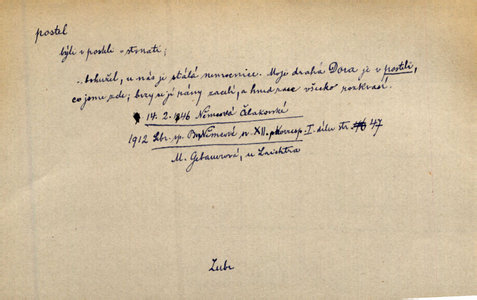 postel
býti v posteli = stonati;
.. bohužel, u nás je stálá nemocnice. Moje drahá Dora je v posteli,
co jsme zde; brzy se jí rány zacelí, a hned zase všecko rozkvasí.
14. 2. 1846 Němcová Čelakovské
1912 Sbr. sp. Bož. Němcové sv. XII. Korresp. I. dílu str. 47
M. Gebauerová, u Laichtra
Zubr